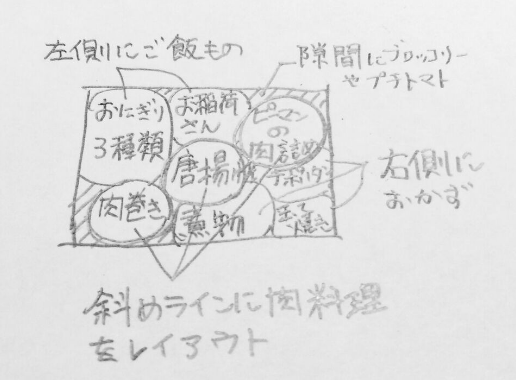 左側にご飯もの
隙間にブロッコリー
やプチトマト
おにぎり
3種類
お稲荷
さん
ピーマン
の
肉詰め
唐揚げ
肉巻き
煮物
玉子
焼き
右側に
おかず
斜めラインに肉料理
をレイアウト